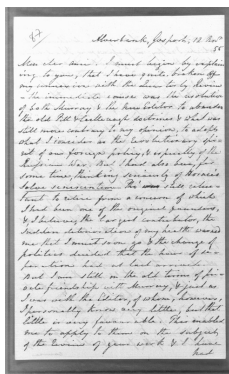 Moorbank, Gosport, 12 Nov.
55
Mon cher ami. I must begin by explain-
ing to you, that I have quite broken off
my connexion with the Quarterly Review
The immediate cause was the resolution
of both Murray & the new Editor to abandon
the old Peel & Castlereagh doctrines & what was
still more contrary to my opinions, to adopt
what I consider as the revolutionary spi-
rit of our foreign policy, & especially of the
Russian War. But I had also been, for
some time, thinking seriously of Horace's
solve senescentem. I was still reluc-
tant to retire from a review of which
I had been one of the original founders,
& I believe, the largest contributor, the
sudden deterioration of my health warned
me that I must soon go & the change of
politics decided that the hour of se-
paration had at last arrived.
But I am still on the old terms of pri-
vate friendship with Murray, & just as
I was with the Editor, of whom, however,
I personally know very little, but that
little is very favourable. This enabled
me to apply to them on the subject
of the Review of your work & I have
had